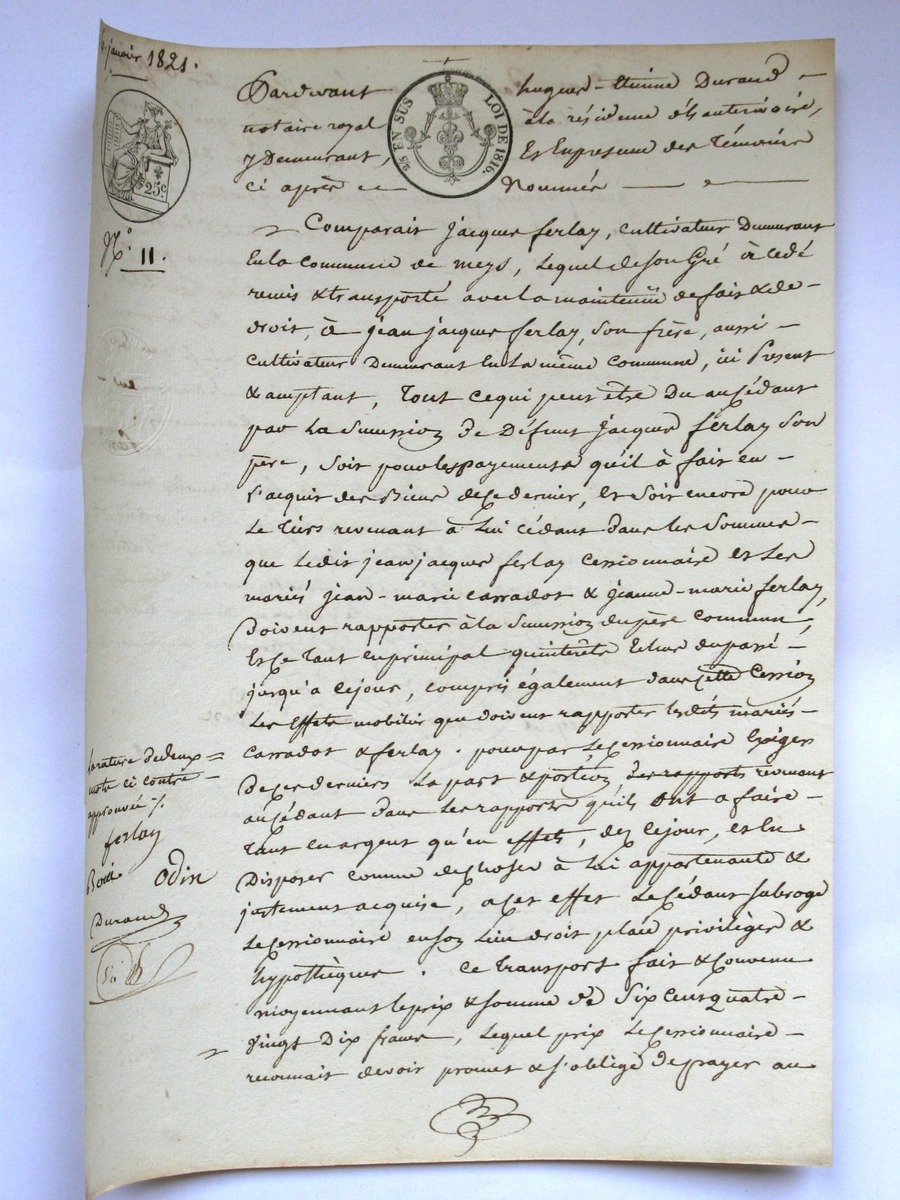 janvier 1821.
25 EN SUS LOI DE 1816.
25c.
N.° 11.
Pardevant hugues-Etienne Durand
notaire royal à la résidence
y Demeurant, Et En presence des Témoins
ci après Nommés
Comparait jacques ferlay, cultivateur Demeurant
En la Commune de meys, Lequel de son Gré à cedé
remis & transporté avec la maintenüe de fait & de
droit, à jean jacques ferlay, son frère, aussi
cultivateur Demeurant En La même Commune, ici Present
& acceptant, Tout ce qui peut être Du au Cédant
par La Succession De Défunt jacques ferlay Son
père, Soit pour les payements qu'il à fait en
l'acquit des Biens de Ce dernier, Et Soit encore pour
Le Tiers revenant à Lui cédant dans les Sommes
que Ledit jean jacques ferlay Cessionnaire et Les
mariés jean-marie carradot & jeanne-marie ferlay,
Doivent rapporter à la Succession du père Commun,
Et Ce Tant en principal qu'interêts Echus du passé
jusqu'a Cejour, compris également dans Cette Cession
Les Effets mobiliers que doivent rapporter lesdits mariés
carradot & ferlay. pour par Le Cessionnaire Exiger
De Ces derniers La part & portion des rapports revenant
au Cédant dans Les rapports qu'ils Ont a faire
Tant en argent qu'en effets, dez Cejour, et En
Disposer comme de Choses à Lui appartenante &
justement acquise, a Cet effet Le Cédant Subroge
Le Cessionnaire en Son Lieu droit place privilèges &
hypothèques. Ce Transport fait & Convenu
moyennant le prix & Somme de Six Cent quatre
Vingt Dix francs, Lequel prix Le Cessionnaire
reconnait devoir promet & s'oblige De payer au
La rature de deux
mots ci contre
approuvée
ferlay
Odin
Durand